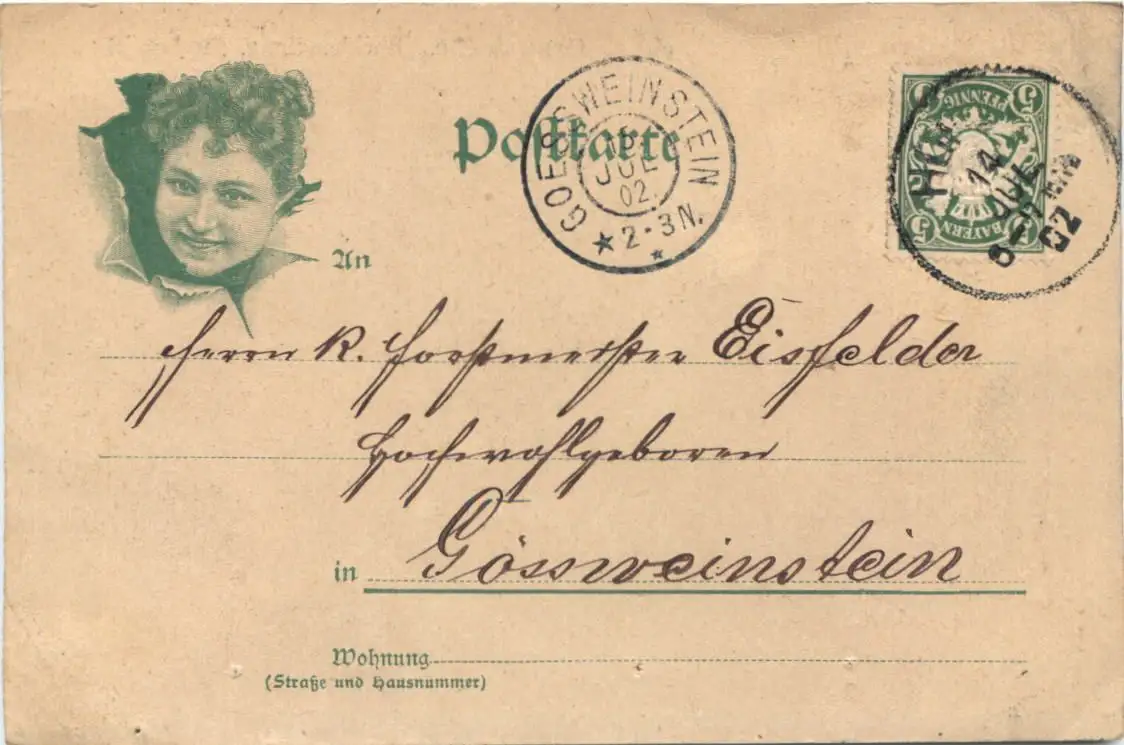 Postkarte
GOESSWEINSTEIN
15
JUL
02.
2-3N.
5 5
PFENNIG
BAYERN
5 5
HOF
14
JUL
8-9 NM
02
An
Herrn K. Forstmeister Eisfelder
Hochwohlgeboren
in Gössweinstein
Wohnung
(Straße und Hausnummer)